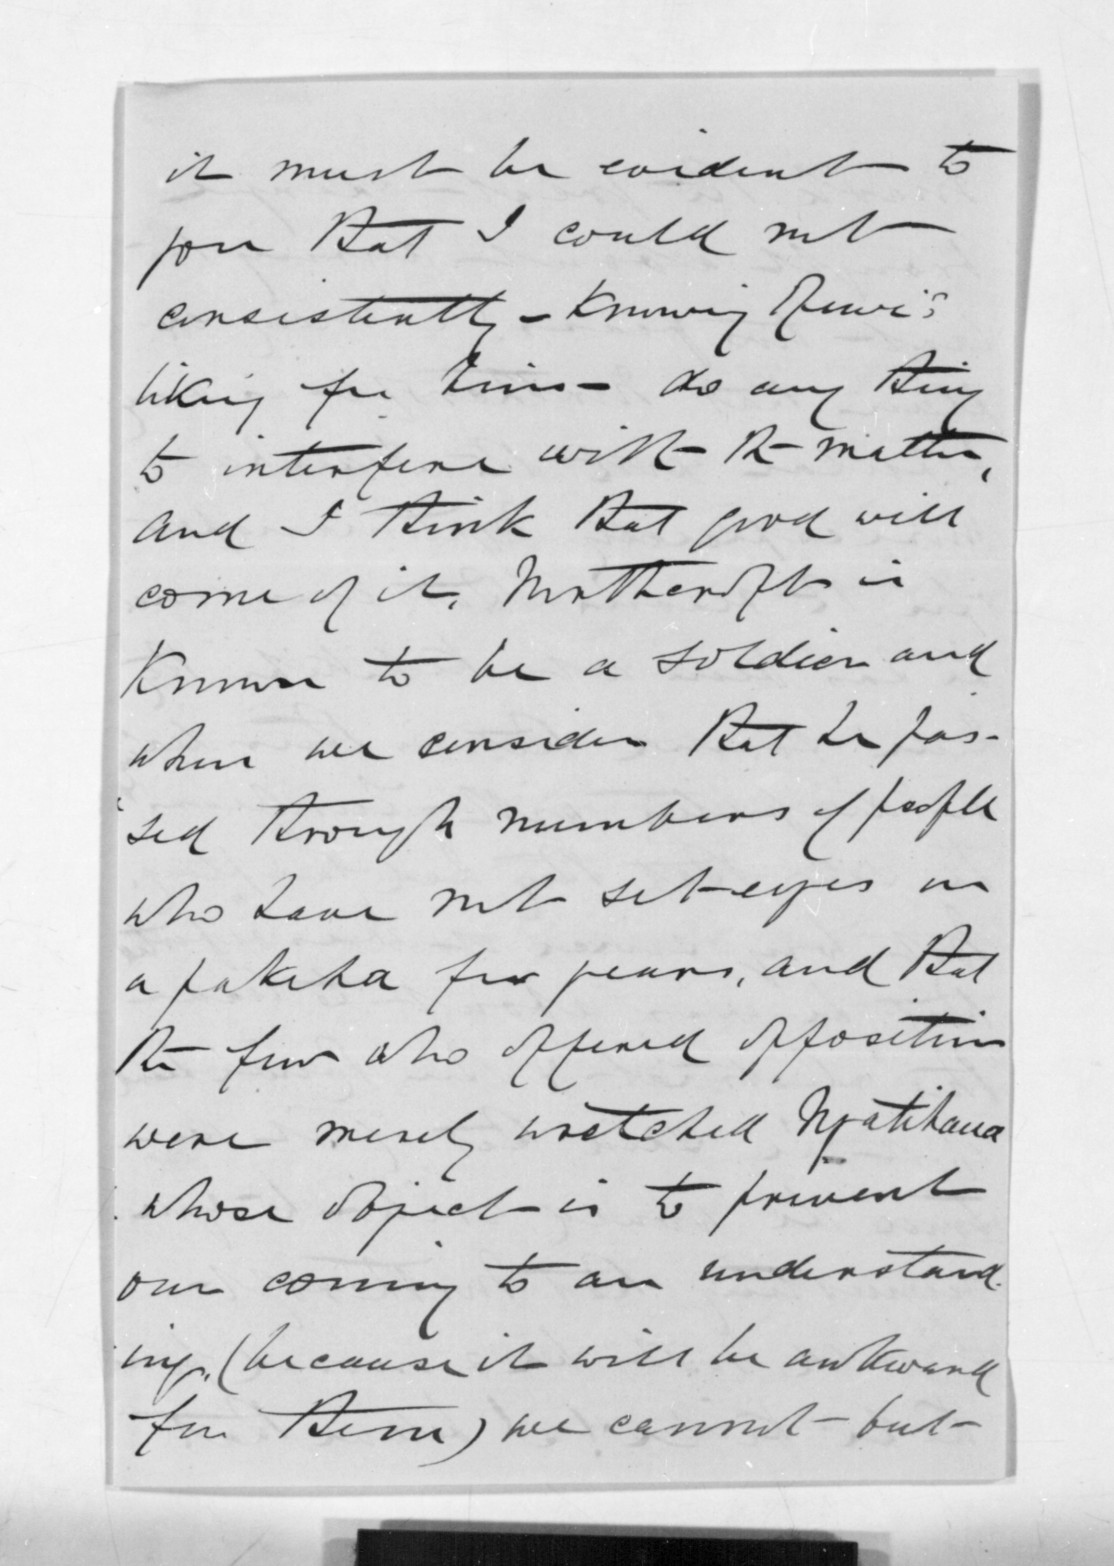 it must be evident to
you that I could not
consistently - knowing Rewi's
liking for him - do any thing
to interfere with the matter,
and I think that good will
come of it. Northcroft is
known to be a soldier and
when we consider that he pas-
sed through numbers of people
who have not set eyes on
a pakeha for years, and that
the few who offered opposition
were merely wretched Ngatihaua
whose object is to prevent
our coming to an understand-
ing, (because it will be awkward
for them) we cannot but